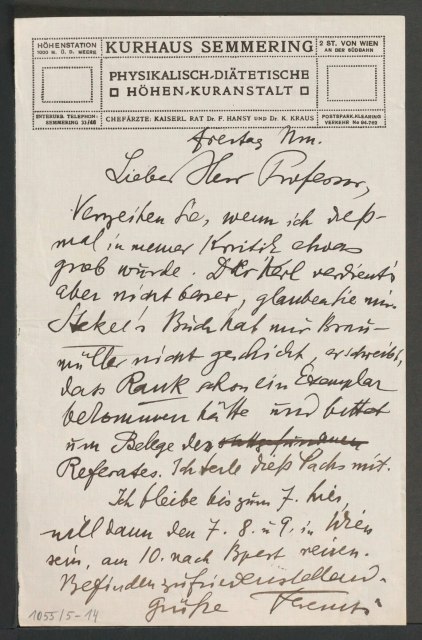 HÖHENSTATION
1000 M. Ü. D. MEERE
KURHAUS SEMMERING
2 ST. VON WIEN
AN DER SÜDBAHN
PHYSIKALISCH-DIÄTETISCHE
HÖHEN-KURANSTALT
INTERURB. TELEPHON:
SEMMERING
CHEFÄRZTE: KAISERL. RAT DR. F. HANSY UND DR. K. KRAUS
POSTSPARK.KLEARING
VERKEHR No 94-763
Freitag Nm.
Lieber Herr Professor,
Verzeihen Sie, wenn ich dieß-
mal in meiner Kritik etwas
grob wurde. Der Kerl verdient's
aber nicht besser, glauben Sie mir.
Stekel's Buch hat mir Brau-
müller nicht geschickt, er schreibt,
dass Rank schon ein Exemplar
bekommen hätte und bittet
um Belege des
Referates. Ich teile dieß Sachs mit.
Ich bleibe bis zum 7. hier,
will dann den 7. 8. u 9. in Wien
sein, am 10. nach Bpest reisen.
Befinden zufriedenstellend.
Grüße Ferenczi
1055/5-14